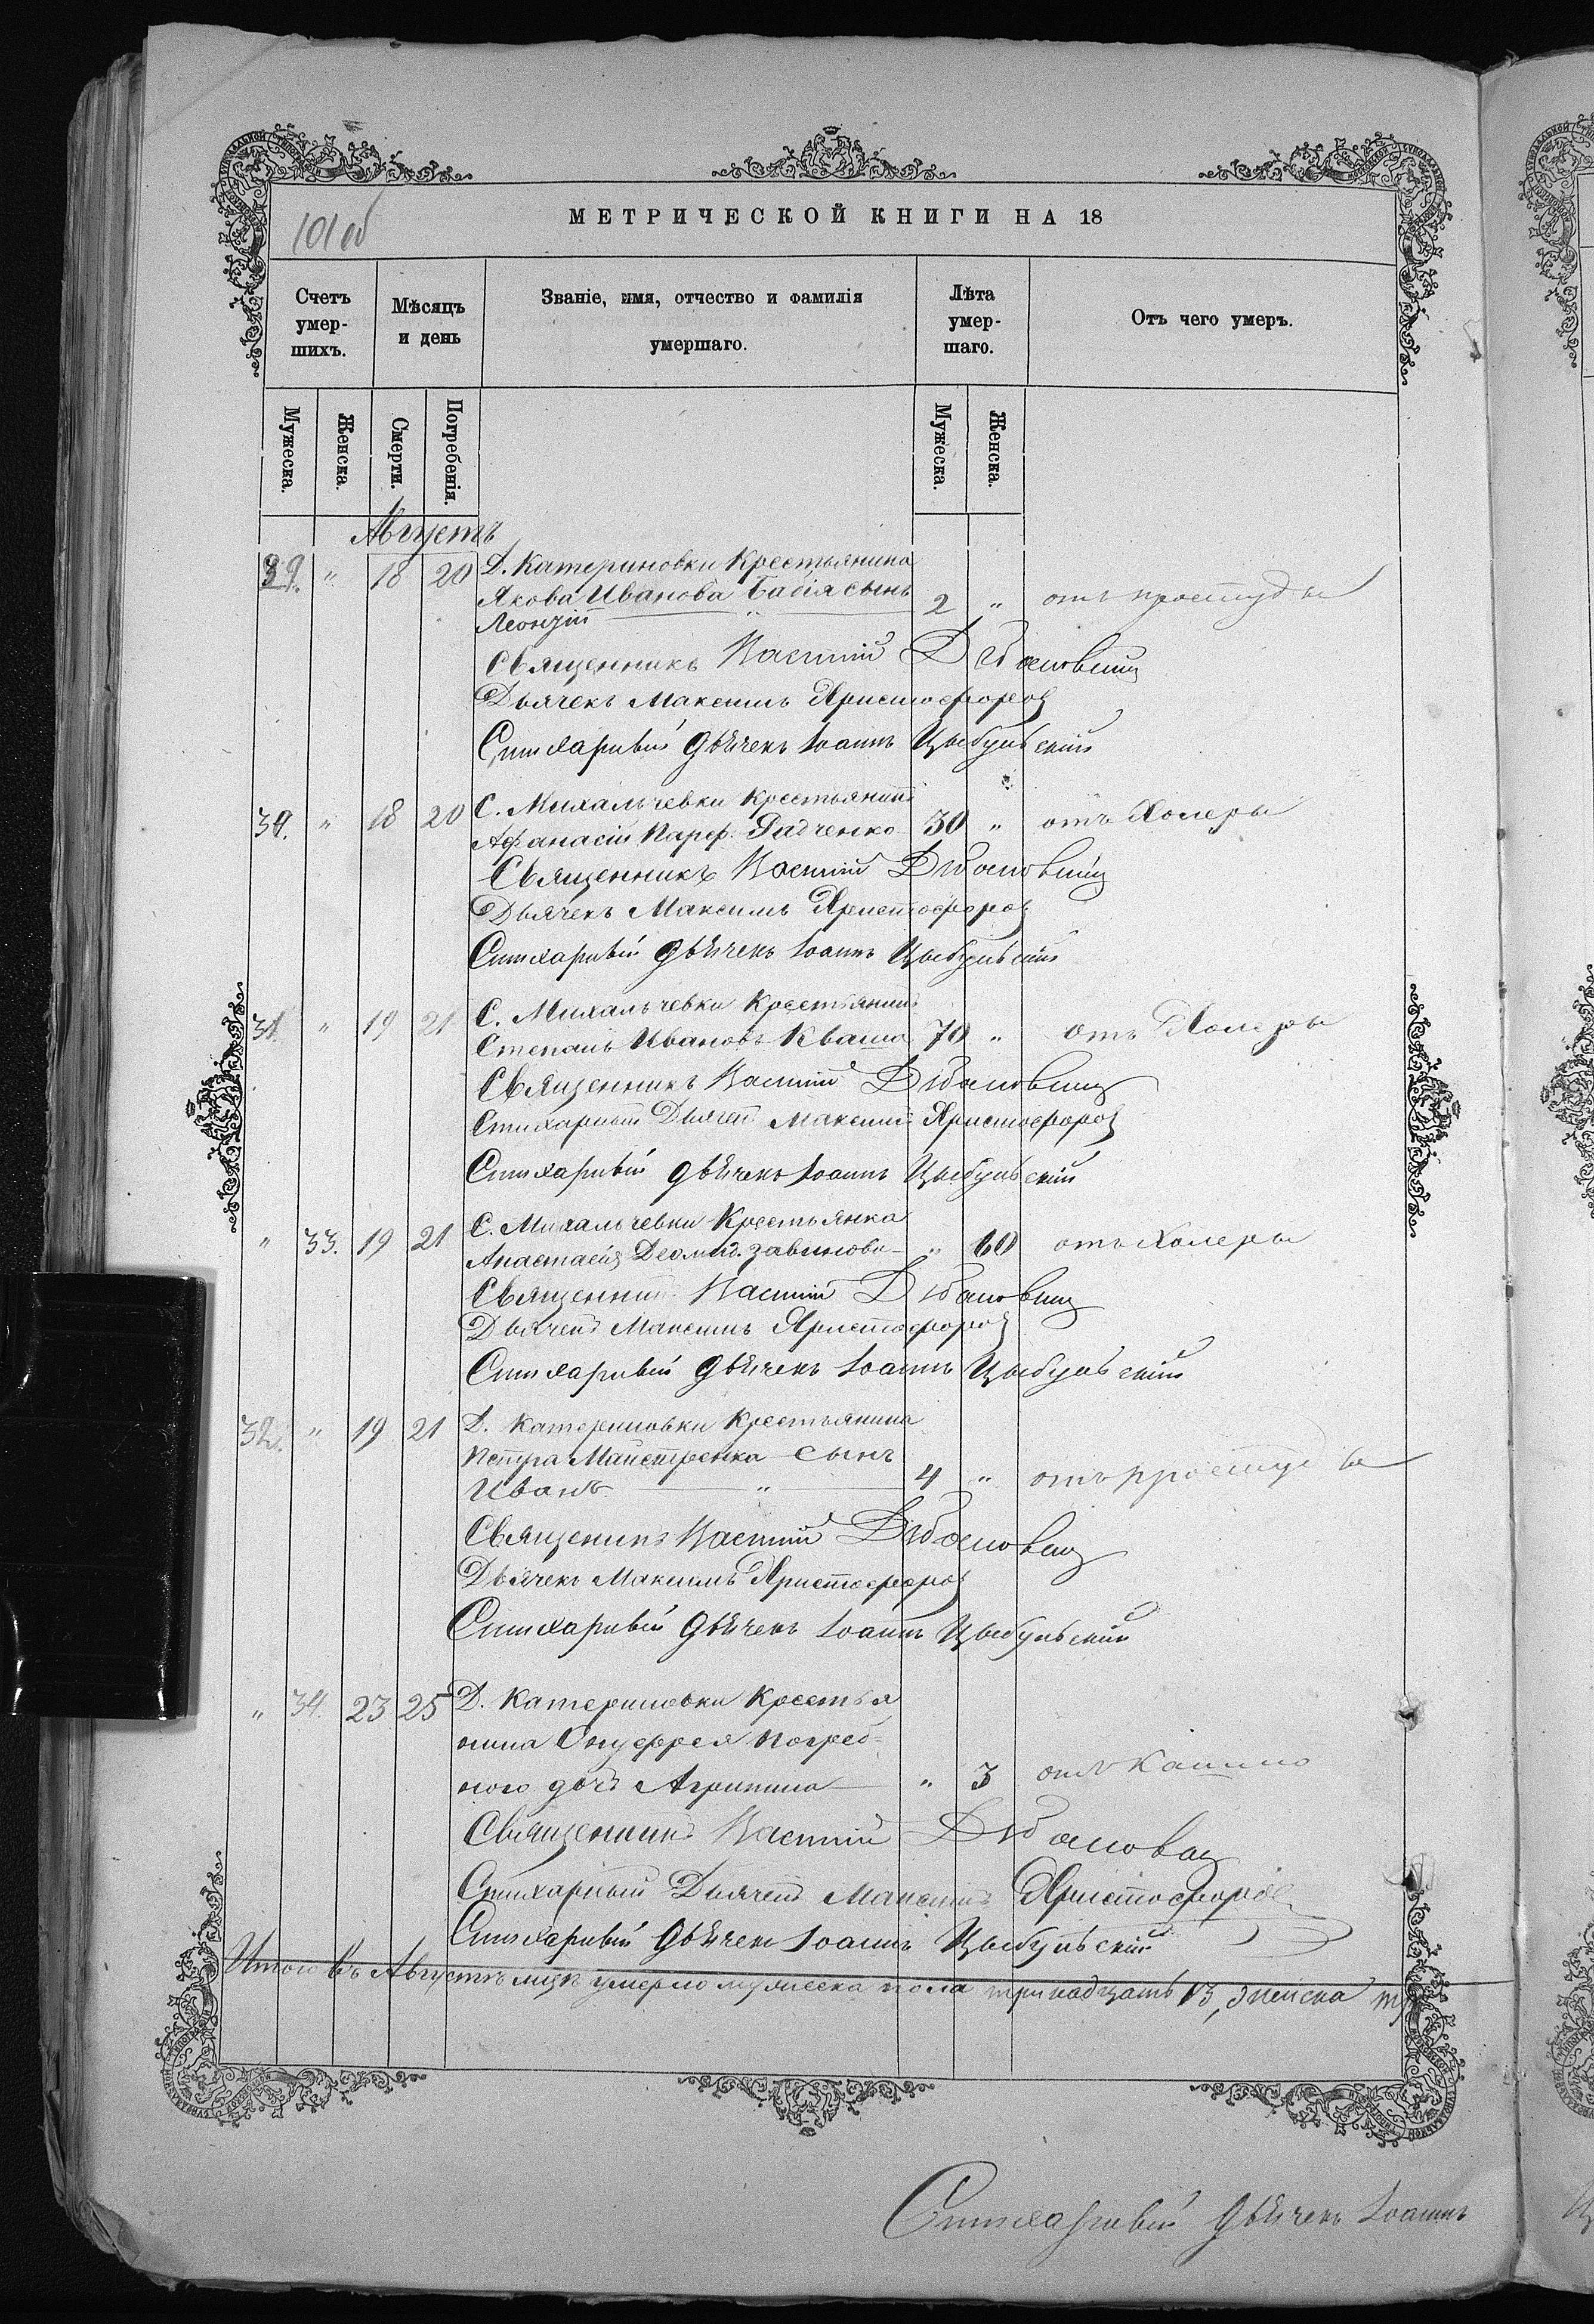 101 об
МЕТРИЧЕСКОЙ КНИГИ НА 18
Счетъ умер-шихъ.
Мѣсяцъ и день
Званіе, имя, отчество и фамилія умершаго.
Лѣта умер-шаго.
Отъ чего умеръ.
Мужеска. Женска. Смерти. Погребенія. Мужеска. Женска.
Августъ
39. " 18 20 Д. Катериновки Крестьянина
Якова Иванова Бабія сынъ 2 " отъ простуды
Леонтій "
Священникъ Василій
Дьячекъ Максимъ Христофоровъ
Стихарный дьячекъ Іоаннъ Цыбульскій
30. " 18 20 С. Михальчевки Крестьянинъ
Афанасій Парф. Радченко 30 " отъ Холеры
Священникъ Василій
Дьячекъ Максимъ Христофоровъ
Стихарный дьячекъ Іоаннъ Цыбульскій
31. " 19 21 С. Михальчевки Крестьянинъ
Степанъ Ивановъ Кваша 70 " отъ Холеры
Священникъ Василій
Стихарный Дьячекъ Максимъ Христофоровъ
Стихарный дьячекъ Іоаннъ Цыбульскій
" 33. 19 21 С. Михальчевки Крестьянка
Анастасія " 60 отъ Холеры
Священникъ Василій
Дьячекъ Максимъ Христофоровъ
Стихарный дьячекъ Іоаннъ Цыбульскій
32. " 19 21 Д. Катериновки Крестьянина
Петра Майстренка сынъ
Иванъ " 4 " отъ простуды
Священникъ Василій
Дьячекъ Максимъ Христофоровъ
Стихарный дьячекъ Іоаннъ Цыбульскій
" 34. 23 25 Д. Катериновки Крестья
нина Онуфрея Погреб-
ного дочь Агрипина " 3 отъ Кашлю
Священникъ Василій
Стихарный Дьячекъ Максимъ Христофоровъ
Стихарный дьячекъ Іоаннъ Цыбульскій
Итого въ Августѣ мцѣ умерло мужеска пола тринадцать 13, женска
Стихарный дьячекъ Іоаннъ